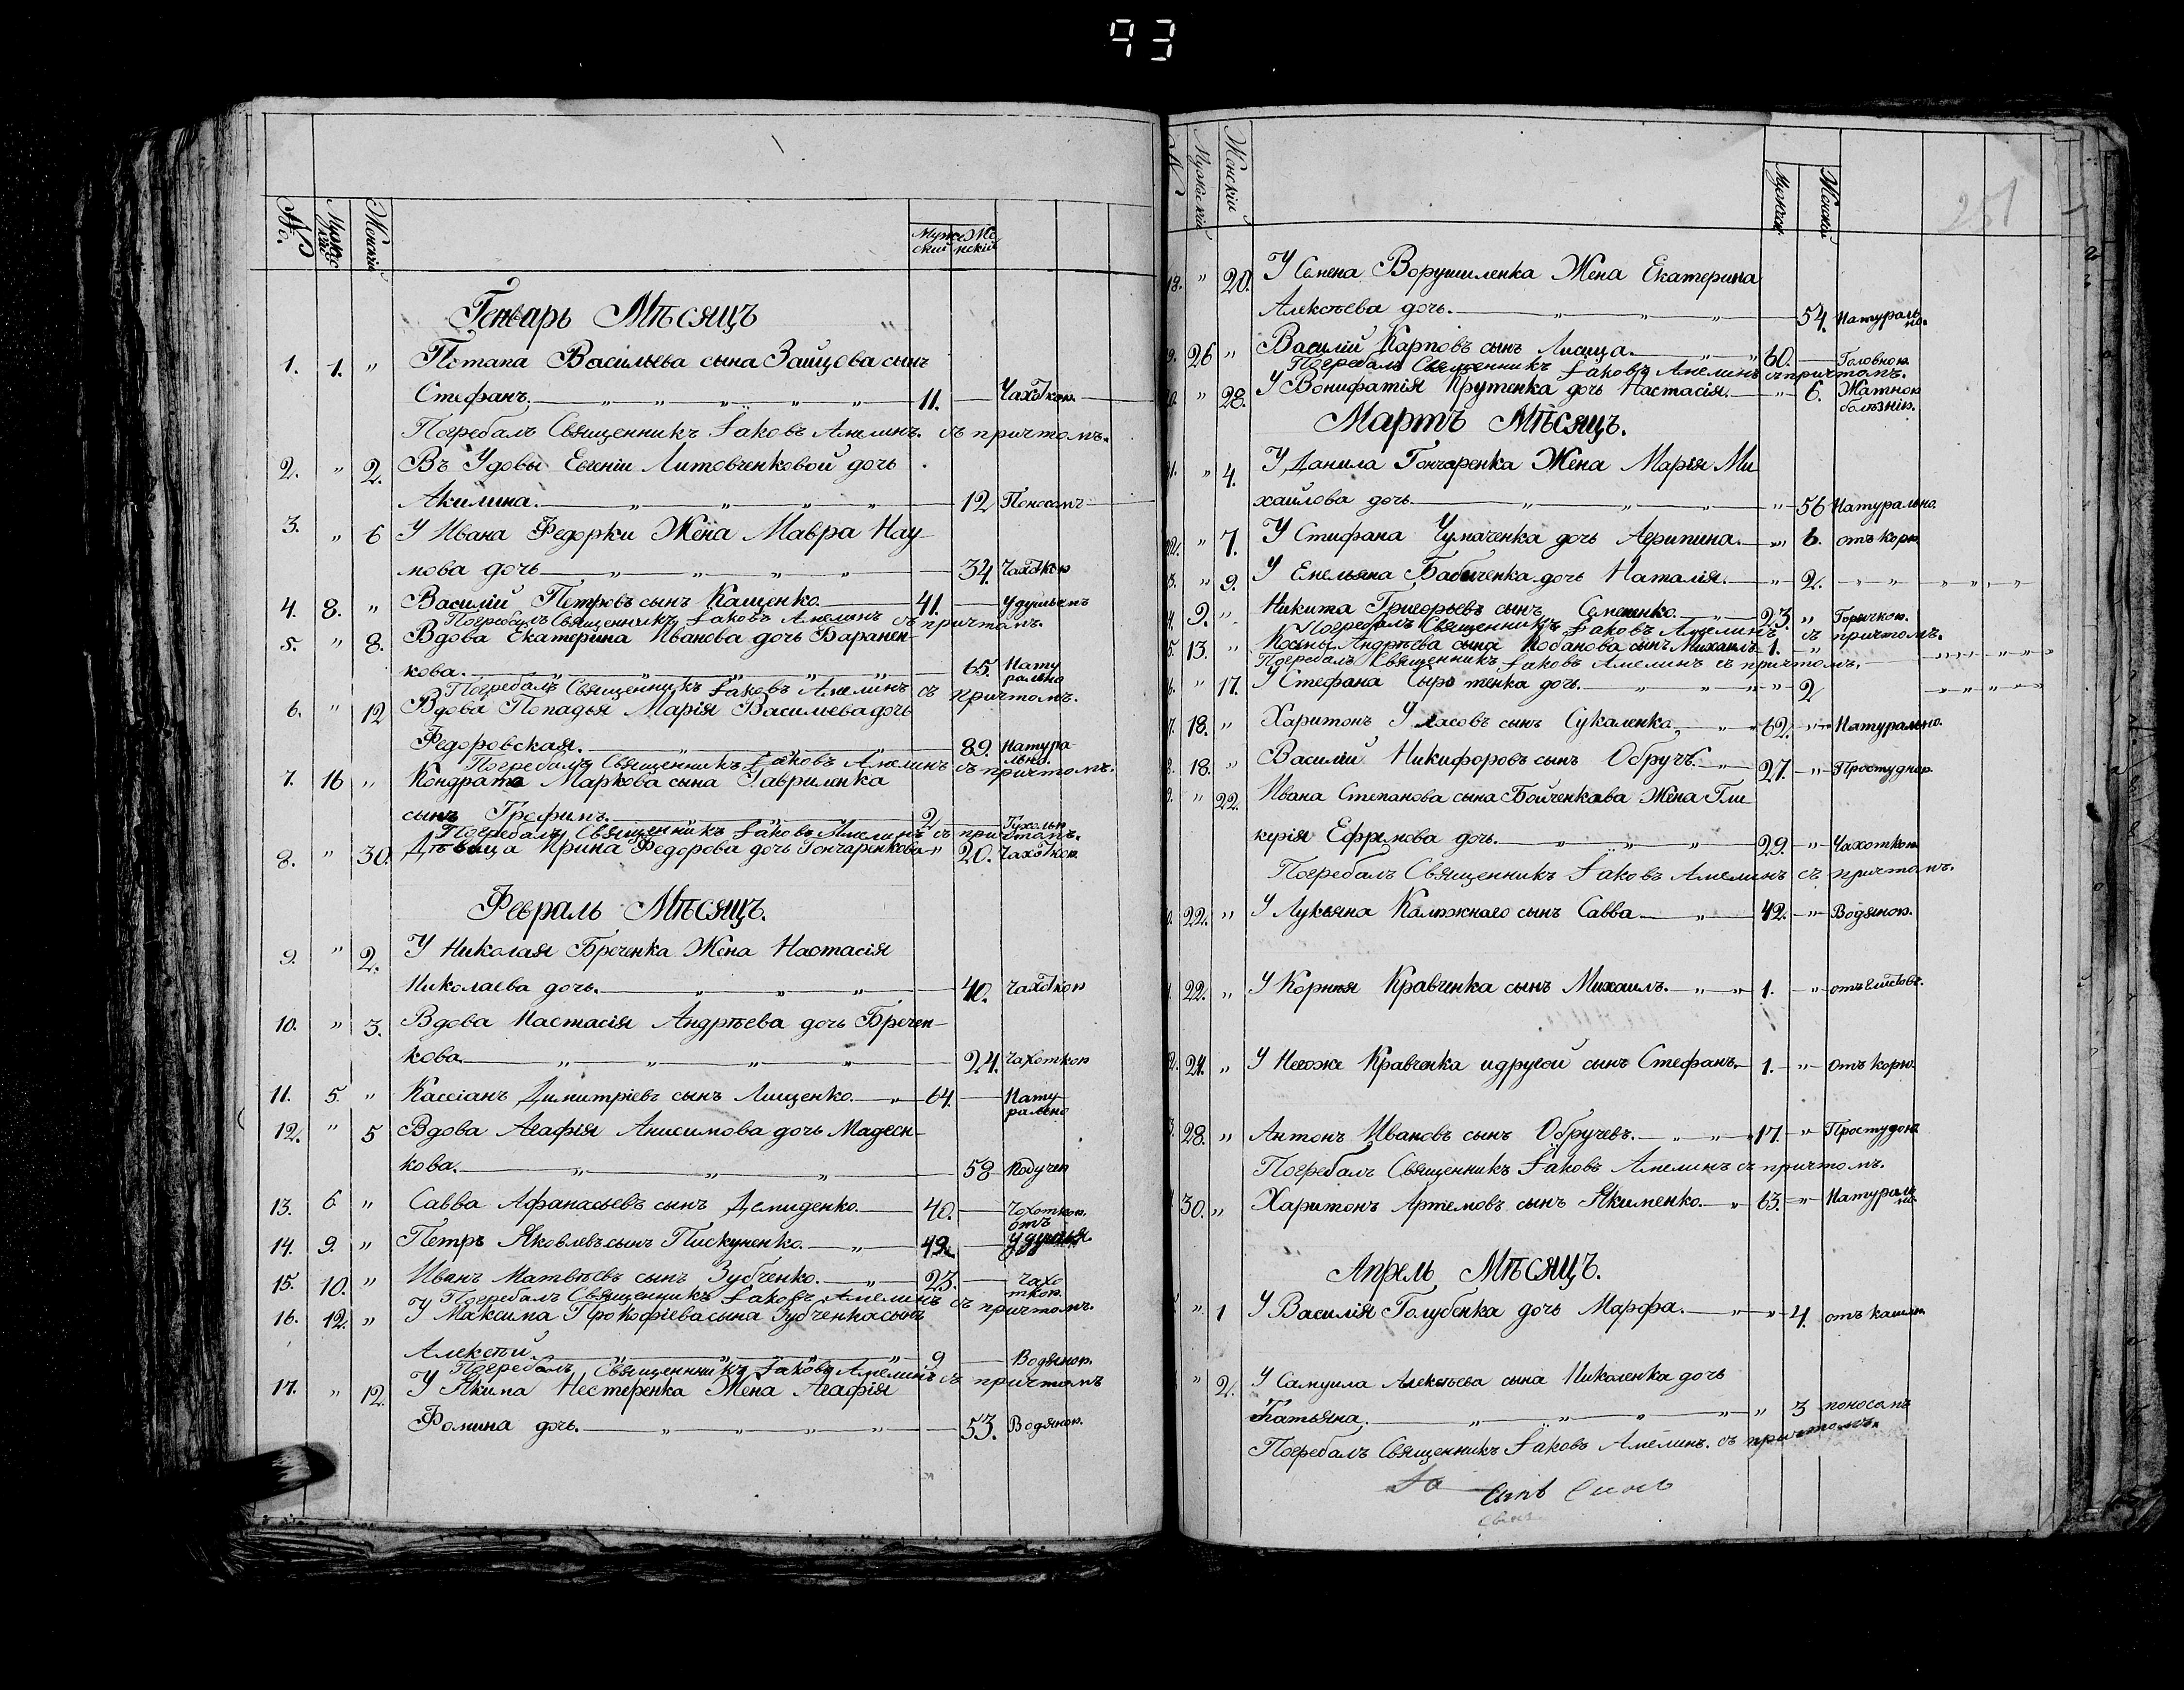 93
№. Мужескій Женскій Мужескій Женскій
Генварь Мѣсяцъ
1. 1. " Потапа Васильева сына Зайцова сынъ
Стефанъ. 11. Чахоткою.
Погребалъ Священникъ Іаковъ Амелинъ. съ причтомъ.
2. " 2. Въ Удовы Евгеніи Литовченковой дочь
Акилина. 12 Поносомъ
3. " 6 У Ивана Федорки Жена Мавра Нау-
мова дочь 34. Чахоткою
4. 8. " Василій Петровъ сынъ Кащенко. 41. Удушьемъ
Погребалъ Священникъ Іаковъ Амелинъ съ причтомъ.
5. " 8. Вдова Екатерина Иванова дочь Баранен-
кова. 65. Натурально
Погребалъ Священникъ Іаковъ Амелинъ съ причтомъ.
6. " 12 Вдова Попадья Марія Васильева дочь
Федоровская. 89. Натурально.
Погребалъ Священникъ Іаковъ Амелинъ съ причтомъ.
7. 16 " Кондрата Маркова сына Гавриленка
сынъ Трофимъ. 2
Погребалъ Священникъ Іаковъ Амелинъ съ причтомъ.
8. " 30. Дѣвица Ирина Федорова дочь Гончаренкова " 20. Чахоткою
Февраль Мѣсяцъ.
9. " 2. У Николая Бреченка Жена Настасія
Николаева дочь. 40. Чахоткою
10. " 3. Вдова Настасія Андрѣева дочь Бречен-
кова. 24. Чахоткою
11. 5 " Кассіанъ Димитріевъ сынъ Лищенко. 64. Натурально
12. " 5 Вдова Агафія Анисимова дочь
кова. 58
13. 6 " Савва Афанасьевъ сынъ Демиденко. 40. Чохоткою.
14. 9. " Петръ Яковлевъ сынъ Пискуненко. 49. отъ удушья.
15. 10. " Иванъ Матвѣевъ сынъ Зубченко. 23. Чахоткою.
Погребалъ Священникъ Іаковъ Амелинъ съ причтомъ.
16. 12. " У Максима Прокофіева сына Зубченка сынъ
Алексѣй. 9 Водяною.
Погребалъ Священникъ Іаковъ Амелинъ съ причтомъ
17. " 12. У Якима Нестеренка Жена Агафія
Фомина дочь. 53. Водяною.
№ Мужескій Женскій Мужескій Женскій
251
18. " 20. У Семена Ворушиленка Жена Екатерина
Алексѣева дочь. 54. Натурально.
26 " Василій Карповъ сынъ Лисица. 60. Головною
Погребалъ Священникъ Іаковъ Амелинъ съ причтомъ.
" 28. У Вонифатія Крутенка дочь Настасія. " 6. Жатною болѣзнію.
Мартъ Мѣсяцъ.
" 4. У Данила Гончаренка Жена Марія Ми
хайлова дочь. " 56 Натурально.
" 7. У Стифана Чумаченка дочь Агрипина. " 6. отъ кори
" 9. У Емельяна Бабиченка дочь Наталія. " 2. " " " " "
9. " Никита Григорьевъ сынъ Семененко. 23. " Горячкою.
Погребалъ Священникъ Іаковъ Амелинъ съ причтомъ.
13. " Косьмы Андрѣева сына Кобанова сынъ Михаилъ 1. "
Погребалъ Священникъ Іаковъ Амелинъ съ причтомъ.
" 17. У Стефана дочь. " 2 " " " "
18. " Харитонъ Уласовъ сынъ Сукаленка. 62. " Натурально.
18. " Василій Никифоровъ сынъ Обручъ. 27. " Простудною.
" 22. Ивана Степанова сына Бойченкова Жена Гли
керія Ефремова дочь. 29. " Чахоткою
Погребалъ Священникъ Іаковъ Амелинъ съ причтомъ.
22. " У Лукьяна Каляжнаго сынъ Савва 42. " Водяною.
22. " У Корнѣя Кравченка сынъ Михаилъ. 1. " отъ
24. " У Негоже Кравченка и другой сынъ Стефанъ. 1. " Отъ кори.
28. " Антонъ Ивановъ сынъ Обручевъ. 17. " Простудою
Погребалъ Священникъ Іаковъ Амелинъ съ причтомъ.
30. " Харитонъ Артемовъ сынъ Якименко. 63. " Натурально.
Апрель Мѣсяцъ.
" 1 У Василія Голубенка дочь Марфа. " 4. отъ кашля.
" 2. У Самуила Алексѣева сына Николенка дочь
Татьяна. " 3 поносомъ
Погребалъ Священникъ Іаковъ Амелинъ. съ причтомъ.